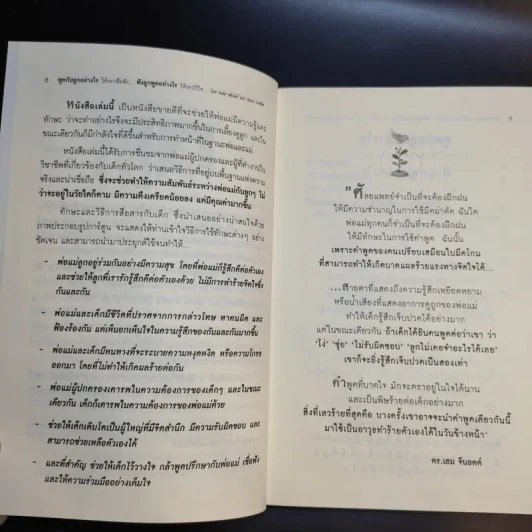 8 พูดกับลูกอย่างไร ให้เขาเชื่อฟัง... ฟังลูกพูดอย่างไร ให้เขาไว้ใจ...
หนังสือเล่มนี้ เป็นหนังสือขายดีที่จะช่วยให้พ่อแม่มีความรู้และ
ทักษะ ว่าจะทำอย่างไรจึงจะมีประสิทธิภาพมากขึ้นในการเลี้ยงดูลูก และใน
ขณะเดียวกันก็มีกำลังใจที่ดีขึ้นสำหรับการทำหน้าที่ในฐานะพ่อและแม่
หนังสือเล่มนี้ได้รับการชื่นชมจากพ่อแม่ผู้ปกครองและผู้ที่ทำงานใน
วิชาชีพที่เกี่ยวข้องกับเด็กทั่วโลก ว่าเสนอวิธีการที่อยู่บนพื้นฐานแห่งความ
จริงและน่าเชื่อถือ ซึ่งจะช่วยทำให้ความสัมพันธ์ระหว่างพ่อแม่กับลูกๆ ไม่
ว่าจะอยู่ในวัยใดก็ตาม มีความตึงเครียดน้อยลง แต่มีคุณค่ามากขึ้น
ทักษะและวิธีการสื่อสารกับเด็ก ซึ่งนำเสนออย่างน่าสนใจด้วย
ภาพประกอบรูปการ์ตูน จะแสดงให้ท่านเข้าใจวิธีการใช้ทักษะต่างๆ อย่าง
ชัดเจน และสามารถนำมาประยุกต์ใช้จนทำให้...
- พ่อแม่ลูกอยู่ร่วมกันอย่างมีความสุข โดยที่พ่อแม่ก็รู้สึกดีต่อตัวเอง
และช่วยให้ลูกที่เรารักรู้สึกดีต่อตัวเองด้วย ไม่มีการทำร้ายจิตใจซึ่ง
กันและกัน
- พ่อแม่และเด็กมีชีวิตที่ปราศจากการกล่าวโทษ หาคนผิด และ
ฟ้องร้องกัน แต่เห็นอกเห็นใจในความรู้สึกของกันและกันมากขึ้น
- พ่อแม่และเด็กมีหนทางที่จะระบายความหงุดหงิด หรือความโกรธ
ออกมา โดยที่ไม่ทำให้เกิดผลร้ายต่อกัน
- พ่อแม่ผู้ปกครองเคารพในความต้องการของเด็กๆ และในขณะ
เดียวกัน เด็กก็เคารพในความต้องการของพ่อแม่ด้วย
- ช่วยให้เด็กเติบโตเป็นผู้ใหญ่ที่มีจิตสำนึก มีความรับผิดชอบ และ
สามารถช่วยเหลือตัวเองได้
- และที่สำคัญ ช่วยให้เด็กไว้วางใจ กล้าพูดปรึกษากับพ่อแม่ เชื่อฟัง
และให้ความร่วมมืออย่างเต็มใจ
7
"ศัลยแพทย์จำเป็นที่จะต้องฝึกฝน
ให้มีความชำนาญในการใช้มีดผ่าตัด ฉันใด
พ่อแม่ทุกคนก็จำเป็นที่จะต้องฝึกฝน
ให้มีทักษะในการใช้คำพูด ฉันนั้น
เพราะคำพูดของคนเปรียบเสมือนใบมีดโกน
ที่สามารถทำให้เกิดบาดแผลร้ายแรงทางจิตใจได้...
...สายตาที่แสดงถึงความรู้สึกเหยียดหยาม
หรือน้ำเสียงที่แสดงอาการดูถูกของพ่อแม่
ทำให้เด็กรู้สึกเจ็บปวดได้อย่างมาก
แต่ในขณะเดียวกัน ถ้าเด็กได้ยินคนพูดต่อว่าเขา ว่า
'โง่' 'ซุ่ย' 'ไม่รับผิดชอบ' 'ลูกไม่เคยจำอะไรได้เลย'
เขาก็จะยิ่งรู้สึกเจ็บปวดเป็นสองเท่า
คำพูดที่บาดใจ มักจะตราอยู่ในใจได้นาน
และเป็นพิษร้ายต่อเด็กอย่างมาก
สิ่งที่เลวร้ายที่สุดคือ บางครั้งเขาอาจจะนำคำพูดเดียวกันนี้
มาใช้เป็นอาวุธทำร้ายตัวเองได้ในวันข้างหน้า"
ดร.เฮม จีนอตต์